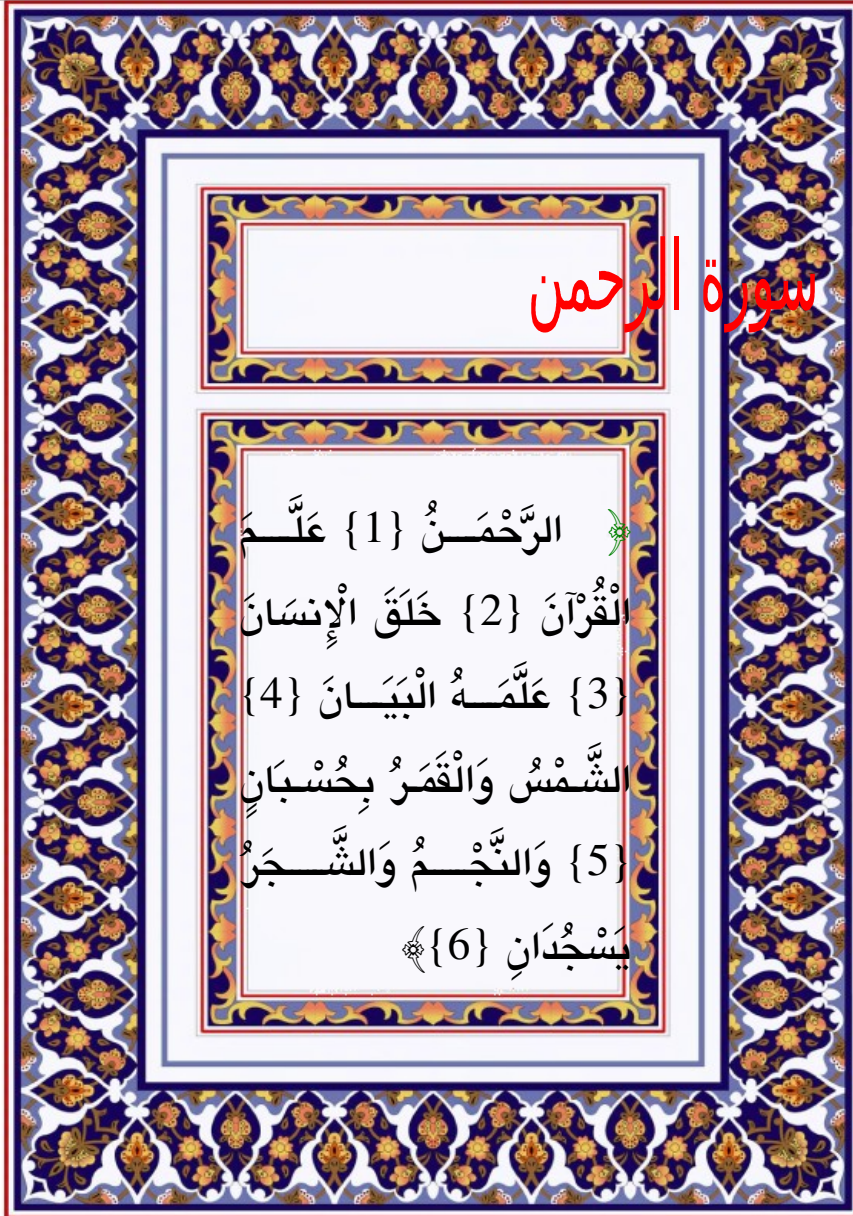 سورة الرحمن
﴿ الرَّحْمَـــنُ {1} عَلَّـــمَ
الْقُرْآنَ {2} خَلَقَ الْإِنسَانَ
{3} عَلَّمَـــهُ الْبَيَـــانَ {4}
الشَّمْسُ وَالْقَمَرُ بِحُسْبَانٍ
{5} وَالنَّجْـــمُ وَالشَّـــجَرُ
يَسْجُدَانِ {6}﴾